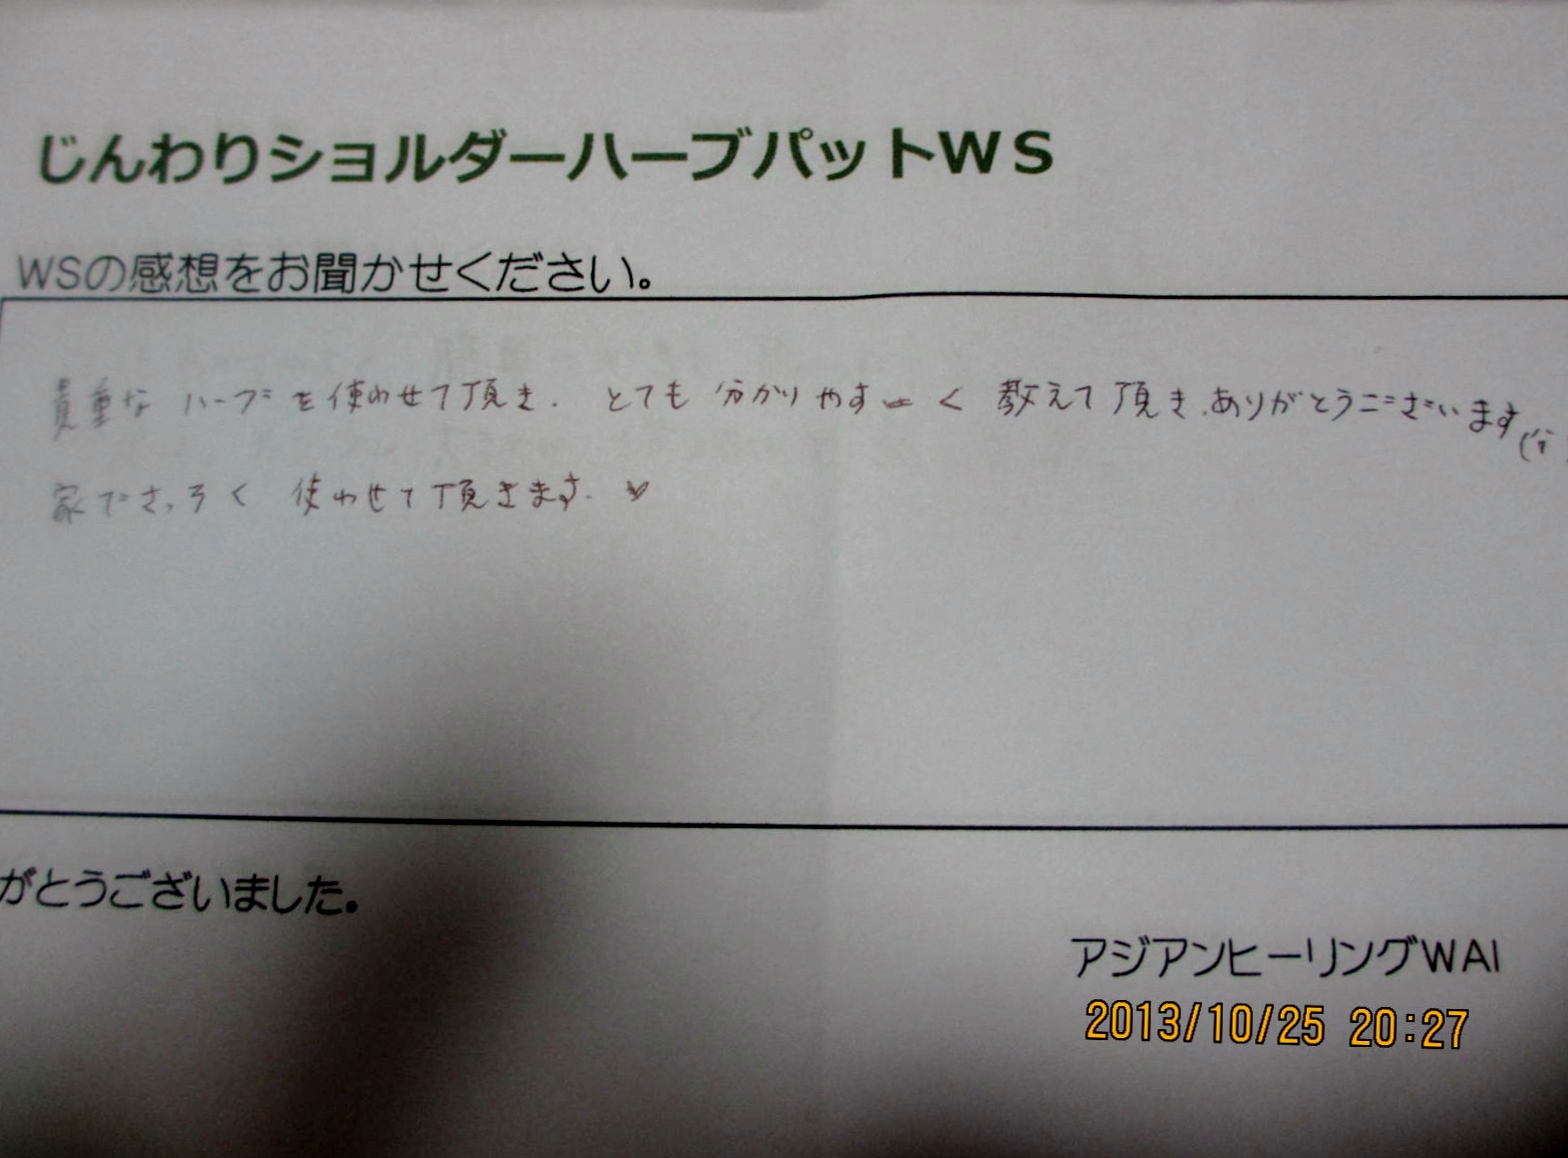 じんわりショルダーハーブパットWS
WSの感想をお聞かせください。
貴重なハーブを使わせて頂き、とても分かりやすーく教えて頂き、ありがとうございます
家でさっそく使わせて頂きます。♥
がとうございました。
アジアンヒーリングWAI
2013/10/25 20:27